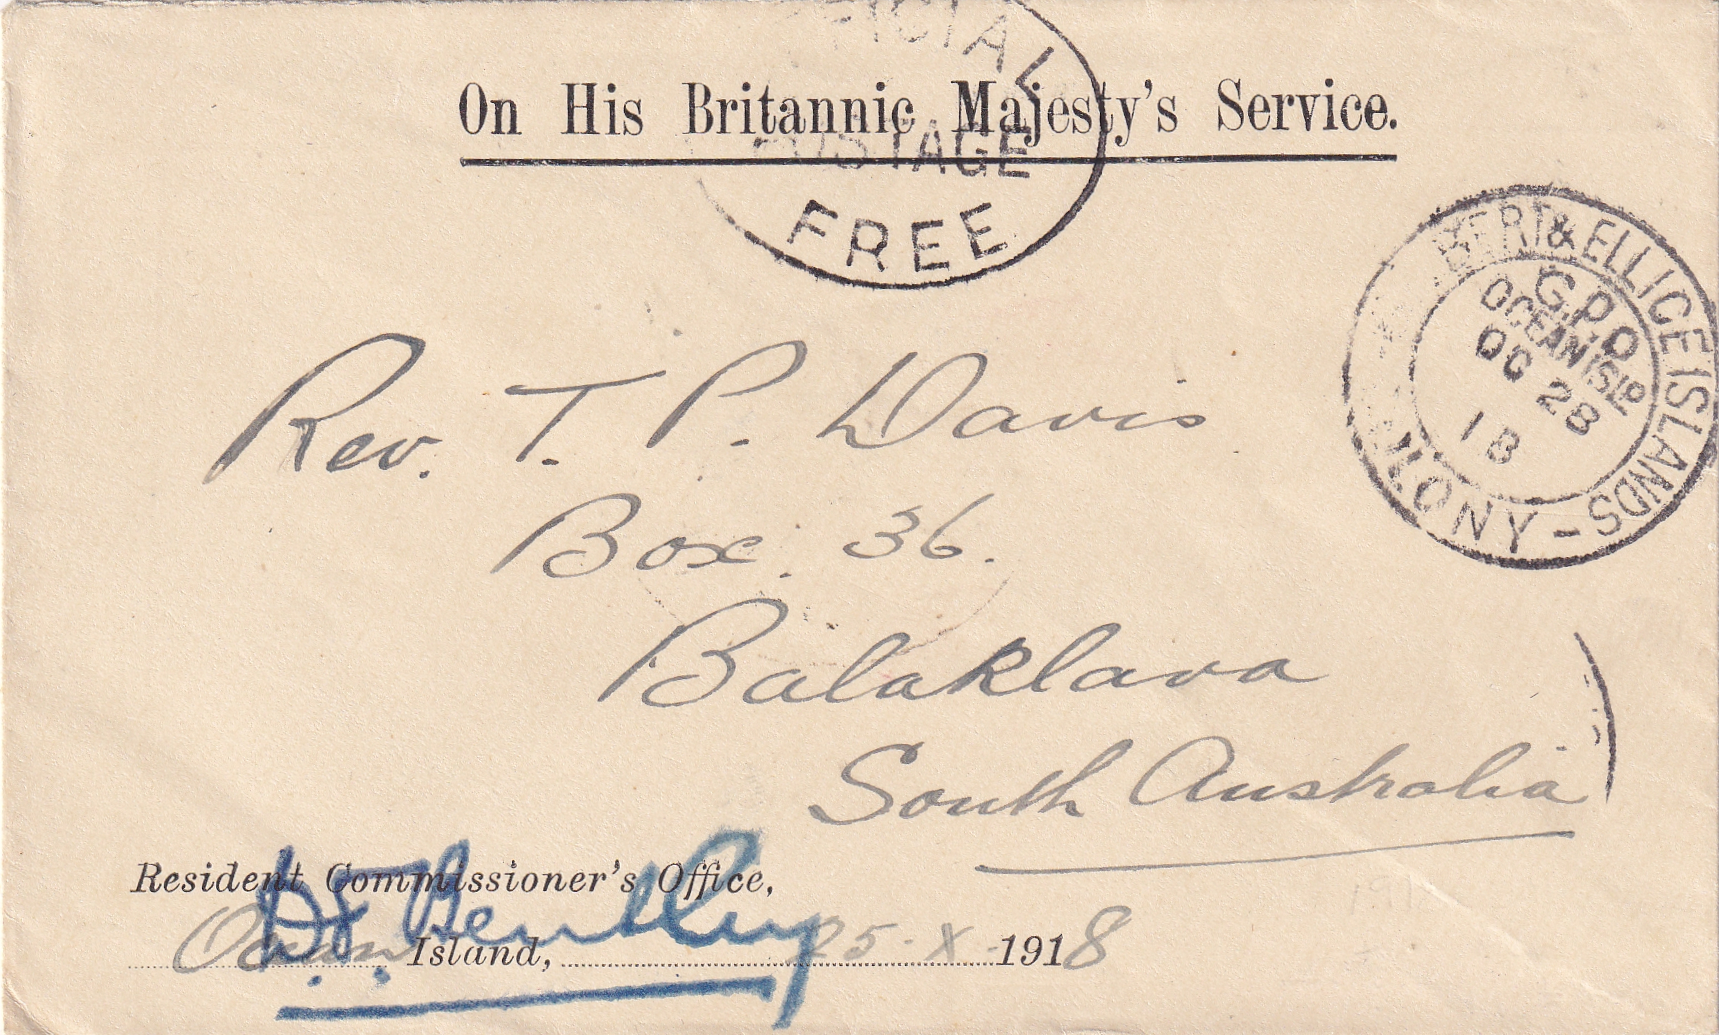 FICIAL
On His Britannic Majesty's Service.
POSTAGE
FREE
BERT & ELLICE ISLANDS
G.P.O
OCEAN ISLD
OC 28
18
LONY -
Rev. T. P. Davis
Box. 36.
Balaklava
South Australia
Resident Commissioner's Office,
Bentley
Ocean Island, 25. X 1918